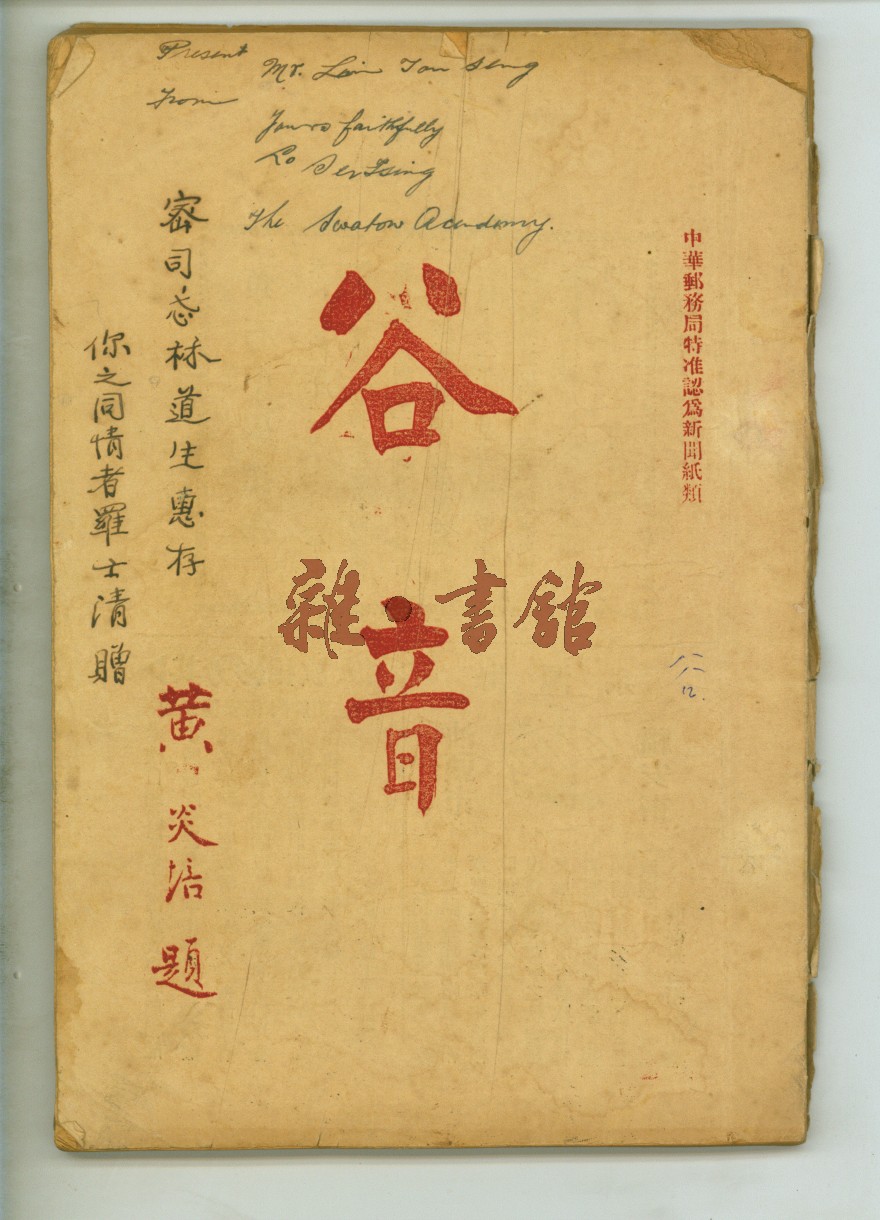 Present
Mr. Lim Tou Seng
From
Yours faithfully
Lo Ser Tsing
The Swatow Academy.
中華郵務局特准認爲新聞紙類
谷音
雜書舘
密司忒林道生惠存
你之同情者羅士清贈
黃炎培題